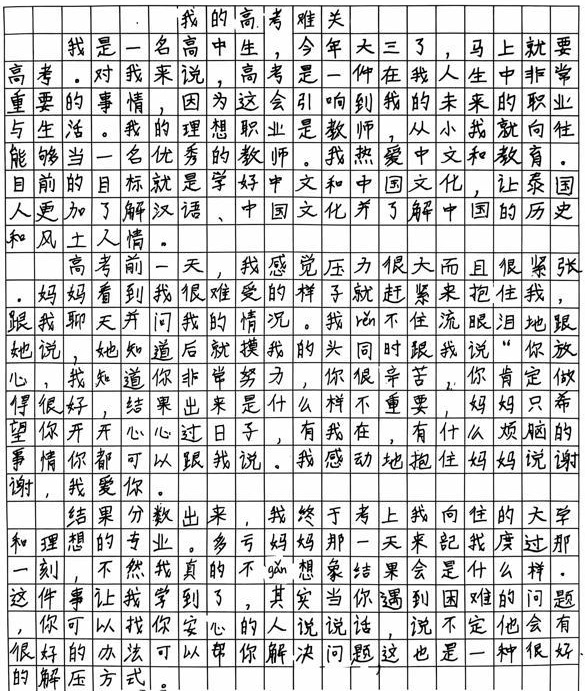 我的高考难关
我是一名高中生，今年大三了，马上就要
高考。对我来说，高考是一件在我人生中非常
重要的事情，因为这会引响到我的未来的职业
与生活。我的理想职业是教师，从小我就向往
能够当一名优秀的教师。我热爱中文和教育。
目前的目标就是学好中文和中国文化，让泰国
人更加了解汉语、中国文化并了解中国的历史
和风土人情。
高考前一天，我感觉压力很大而且很紧张
。妈妈看到我很难受的样子就赶紧来抱住我，
跟我聊天并问我的情况。我rěn不住流眼泪地跟
她说，她知道后就摸我的头同时跟我说“你放
心，我知道你非常努力，你很辛苦，你肯定做
得很好，结果出来是什么样不重要，妈妈只希
望你开开心心过日子，有我在，有什么烦脑的
事情你都可以跟我说。我感动地抱住妈妈说谢
谢，我爱你。
结果分数出来，我终于考上我向往的大学
和理想的专业。多亏妈妈那一天来記我度过那
一刻，不然我真的不gǎn想象结果会是什么样。
这件事让我学到了，其实当你遇到困难的问题
，你可以找你安心的人说说话，说不定他会有
很好的办法可以帮你解决问题这也是一种很好
的解压方式。